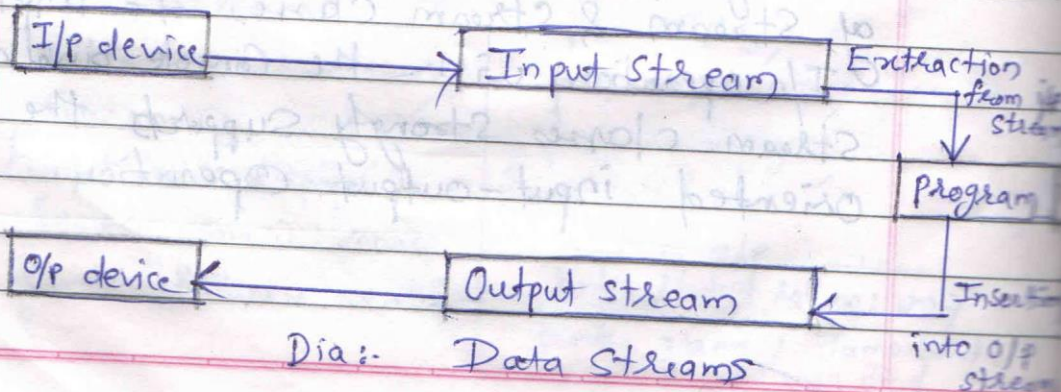 I/p device
Input stream
Extraction
from
program
O/p device
Output stream
into O/p
Dia:- Data Streams